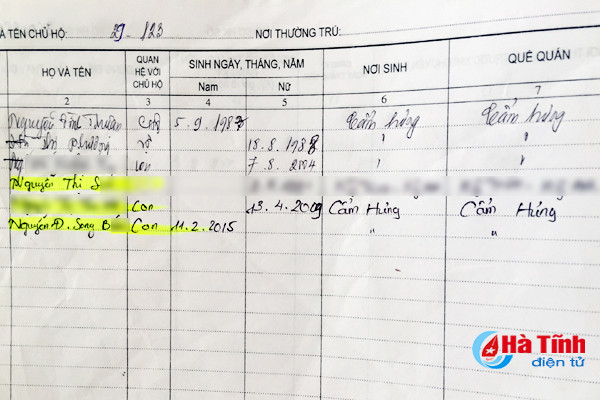 À TÊN CHỦ HỘ: 29 - 123 NƠI THƯỜNG TRÚ:
HỌ VÀ TÊN QUAN HỆ VỚI CHỦ HỘ SINH NGÀY, THÁNG, NĂM NƠI SINH QUÊ QUÁN
Nam Nữ
2 3 4 5 6 7
Nguyễn Đình Thuần 5.9.1987 Cẩm hưng Cẩm hưng
Thị Phương vợ 18.8.1988 " "
con 7.8.2004 " "
Nguyễn Thị S
Con 13.4.2009 Cẩm Hưng Cẩm Hưng
Nguyễn Đ. Song B Con 11.2.2015 " "
Hà Tĩnh
điện tử